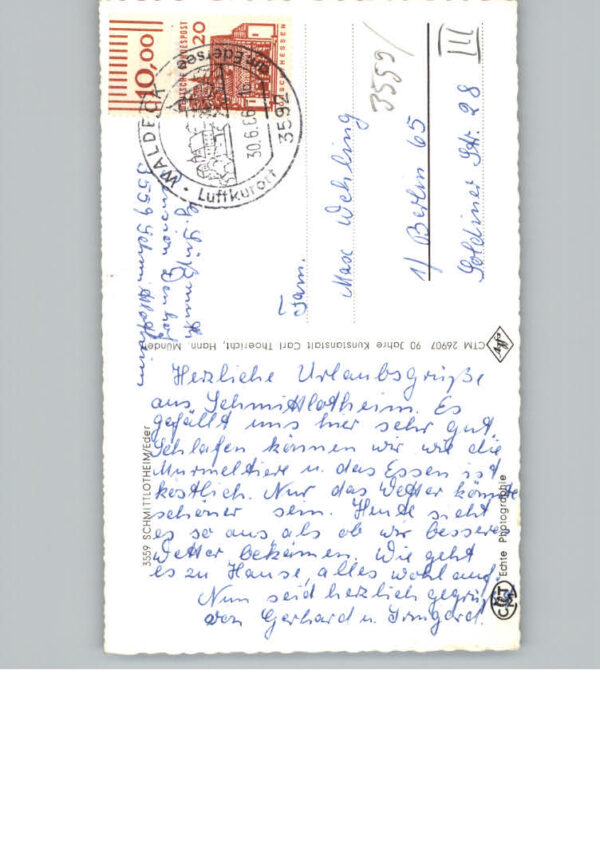 Herzliche Urlaubsgrüße
aus Schmittlotheim. Es
gefällt uns hier sehr gut.
Schlafen können wir wie die
Murmeltiere u. das Essen ist
köstlich. Nur das Wetter könnte
schöner sein. Heute sieht
es so aus als ob wir besseres
Wetter bekämen. Wie geht
es zu Hause, alles wohlauf
Nun seid herzlich gegrüßt
von Gerhard u. Irmgard.
3559 SCHMITTLOTHEIM/Eder
Echte Photographie
CTM 26907 90 Jahre Kunstanstalt Carl Thoericht, Hann. Münden
Fam.
Max Wehling
1/ Berlin 65
Soldiner Str. 28
3559/
III
3559 Schmittlotheim
10,00
20
DEUTSCHE BUNDESPOST
WALDECK
am Edersee
Luftkurort
3592
30.6.66